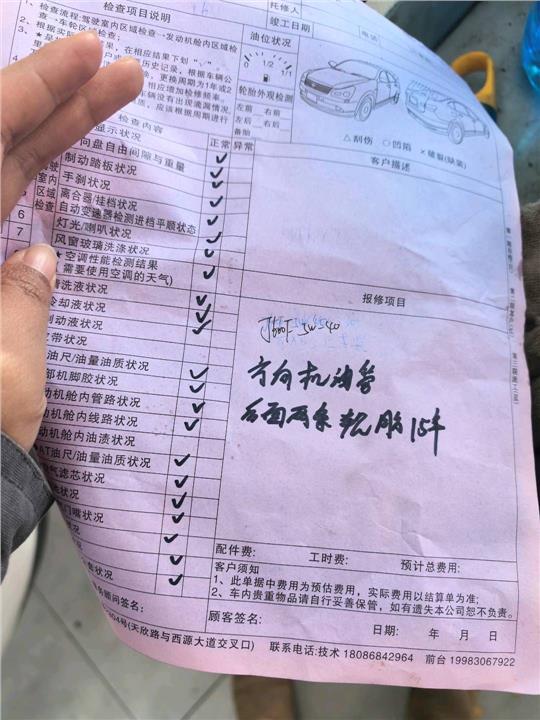 检查项目说明
托修人
竣工日期
电话
检查流程:驾驶室内区域检查→发动机舱内区域检
查→车轮区域检查;
油位状况
0 1/2 1/1
轮胎外观检测
左前 右前
左后 右后
备胎
△刮伤 ○凹陷 ×破裂(缺菜)
检查内容
正常 异常
客户描述
显示状况
向盘自由间隙与重量
制动踏板状况
手刹状况
离合器/挂档状况
区域
检查
自动变速器检测进档平顺状态
6
灯光/喇叭状况
7
风窗玻璃洗涤状况
★空调性能检测结果
(需要使用空调的天气)
清洗液状况
冷却液状况
制动液状况
带状况
油尺/油量油质状况
部机脚胶状况
动机舱内管路状况
动机舱内线路状况
动机舱内油渍状况
AT油尺/油量油质状况
气滤芯状况
状况
门嘴状况
状况
状况
报修项目
5W540
方向机油管
后面两条轮胎15年
配件费: 工时费: 预计总费用:
客户须知
1、此单据中费用为预估费用,实际费用以结算单为准;
2、车内贵重物品请自行妥善保管,如有遗失本公司恕不负责。
顾问签名:
顾客签名:
日期: 年 月 日
304号(天欣路与西源大道交叉口) 联系电话:技术 18086842964 前台 19983067922